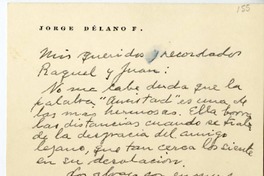 155
JORGE DÉLANO F.
Mis queridos y recordados
Raquel y Juan:
No me cabe duda que la
palabra "Amistad" es una de
las mas hermosas. Ella borra
las distancias cuando se trata
de la desgracia del amigo
lejano, que tan cerca los siente
en su desolación.